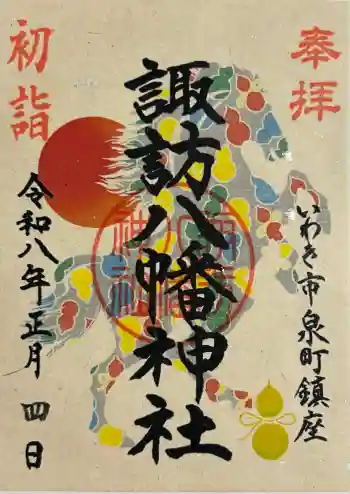 奉拝
いわき市泉町鎮座
諏訪八幡神社
初詣
令和八年正月四日